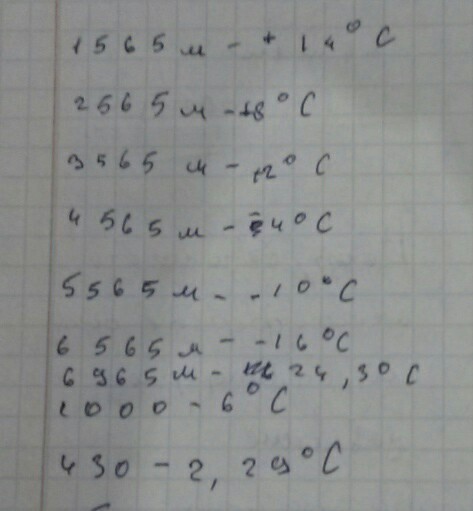 1565 м - + 14° С
2565 м - +8° С
3565 м - +2° С
4565 м - -4° С
5565 м - -10° С
6565 м - -16° С
6965 м - 24,3° С
1000 - 6° С
430 - 2,29° С